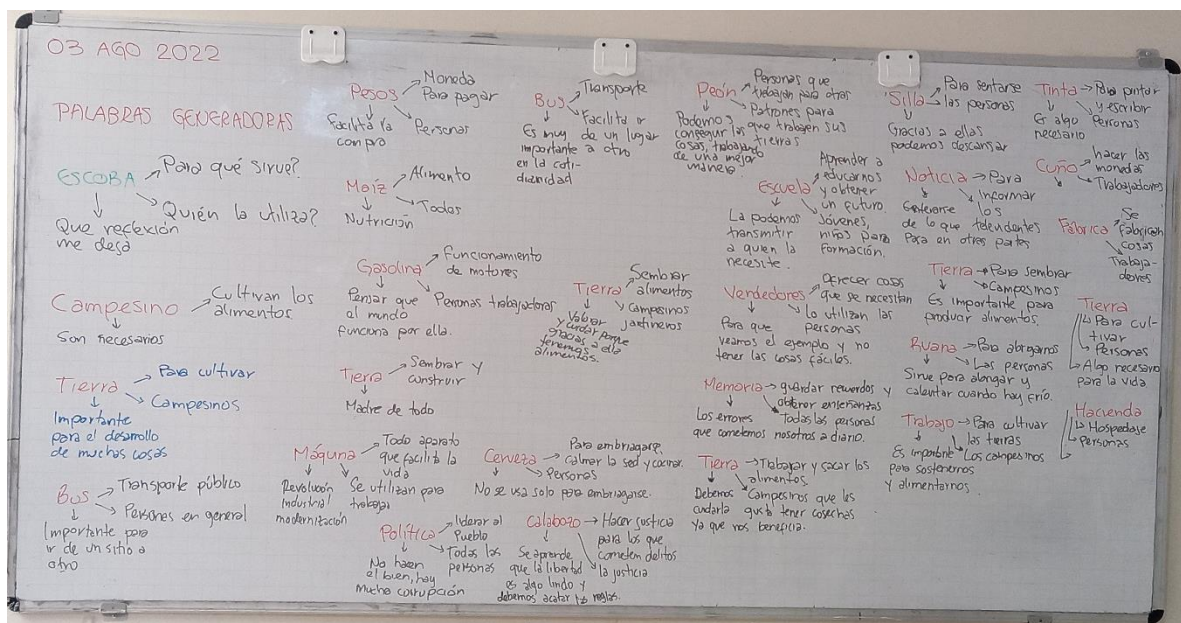 03 AGO 2022
PALABRAS GENERADORAS
ESCOBA
Para qué sirve?
Quién la utiliza?
Que reflexión
me deja
Campesino
Cultivan los
alimentos
Son necesarios
Tierra
Para cultivar
Campesinos
Importante
para el desarrollo
de muchas cosas
Bus
Transporte público
Personas en general
Importante para
ir de un sitio a
otro
Pesos
Moneda
Para pagar
Personas
Facilita la
compra
Maíz
Alimento
Todos
Nutrición
Gasolina
Funcionamiento
de motores
Personas trabajadoras
Pensar que
el mundo
funciona por ella.
Tierra
Sembrar y
construir
Madre de todo
Máquina
Todo aparato
que facilita la
vida
Se utilizan para
trabajar
Revolución
Industrial
modernización
Política
liderar al
Pueblo
Todas las
personas
No hacen
el bien, hay
mucha corrupción
Bus
Transporte
Facilita ir
de un lugar
a otro
Es muy
importante
en la coti-
dianidad
Tierra
Sembrar
alimentos
Campesinos
jardineros
Valorar
y cuidar porque
gracias a ella
tenemos
alimentos.
Cerveza
Para embriagarse,
calmar la sed y cocinar.
Personas
No se usa solo para embriagarse.
Calabozo
Hacer justicia
para los que
cometen delitos
la justicia
Se aprende
que la libertad
es algo lindo y
debemos acatar las reglas.
Peón
Personas que
trabajan para otros
Patrones para
que trabajen sus
tierras
Podemos
conseguir las
cosas, trabajando
de una mejor
manera
Escuela
Aprender a
educarnos
y obtener
un futuro.
Jóvenes,
niños para
formación.
La podemos
transmitir
a quien la
necesite.
Vendedores
Ofrecer cosas
que se necesitan
Lo utilizan las
personas
Para que
veamos el ejemplo y no
tener las cosas fáciles.
Memoria
guardar recuerdos y
obtener enseñanzas
Todas las personas
Los errores
que cometemos nosotros a diario.
Tierra
Trabajar y sacar los
alimentos.
Campesinos que les
gusta tener cosechas
Debemos
cuidarla
ya que nos beneficia.
Silla
Para sentarse
las personas
Gracias a ellas
podemos descansar
Noticia
Para
Informar
los
televidentes
Enterarse
de lo que
Pasa en otras partes
Tierra
Para sembrar
Campesinos
Es importante para
producir alimentos.
Ruana
Para abrigarnos
Las personas
Sirve para abrigar y
calentar cuando hay frío.
Trabajo
Para cultivar
las tierras
Los campesinos
Es importante
para sostenernos
y alimentarnos
Tinta
Para pintar
y escribir
Personas
Es algo
necesario
Cuño
hacer las
monedas
Trabajadores
Fábrica
Se
fabrican
cosas
Trabaja-
dores
Tierra
Para cul-
tivar
Personas
Algo necesario
para la vida
Hacienda
Hospedaje
Personas